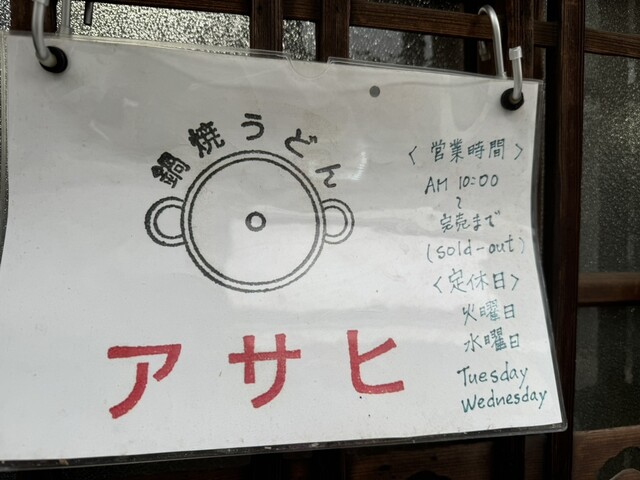 鍋焼うどん
アサヒ
〈営業時間〉
AM 10:00
〜
完売まで
(sold-out)
〈定休日〉
火曜日
水曜日
Tuesday
Wednesday